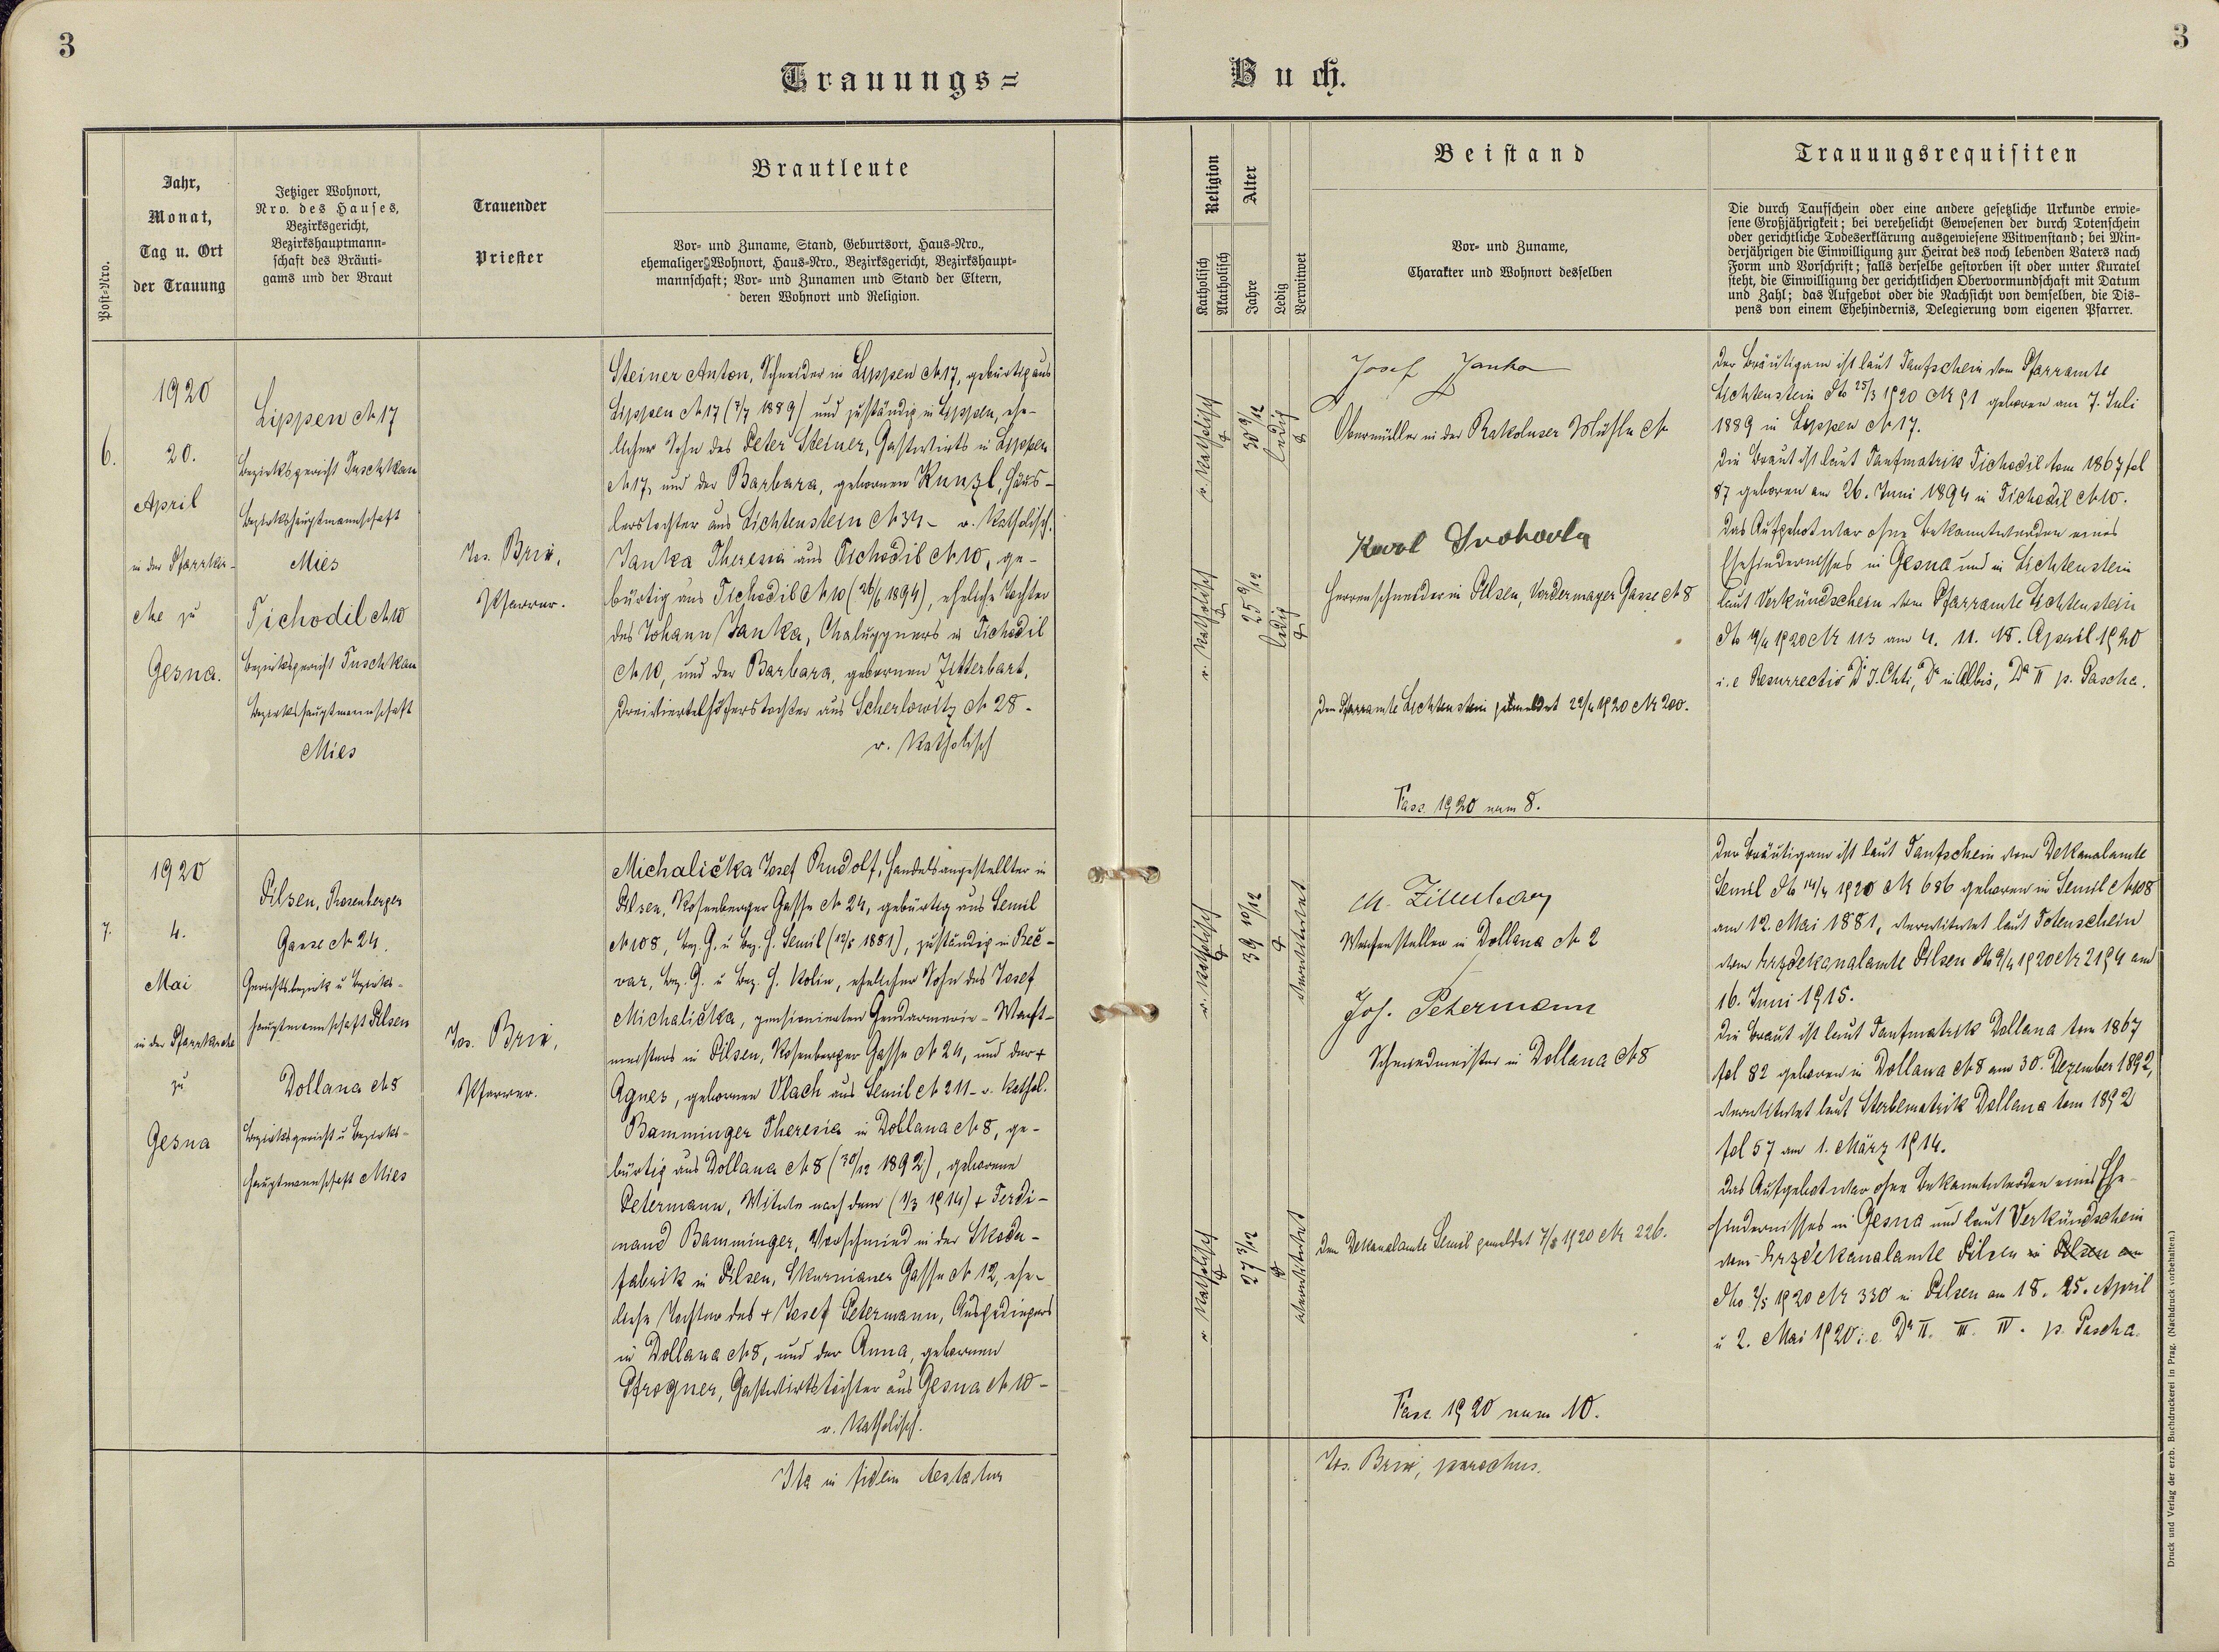 3
3
Trauungs=
Buch.
Post-Nro.
Jahr,
Monat,
Tag u. Ort
der Trauung
Jetziger Wohnort,
Nro. des Hauses,
Bezirksgericht,
Bezirkshauptmann-
schaft des Bräuti-
gams und der Braut
Trauender
Priester
Brautleute
Vor- und Zuname, Stand, Geburtsort, Haus-Nro.,
ehemaliger Wohnort, Haus-Nro., Bezirksgericht, Bezirkshaupt-
mannschaft; Vor- und Zunamen und Stand der Eltern,
deren Wohnort und Religion.
Religion
Katholisch
Akatholisch
Alter
Jahre
Ledig
Verwitwet
Beistand
Vor- und Zuname,
Charakter und Wohnort desselben
Trauungsrequisiten
Die durch Taufschein oder eine andere gesetzliche Urkunde erwie-
sene Großjährigkeit; bei verehelicht Gewesenen der durch Totenschein
oder gerichtliche Todeserklärung ausgewiesene Witwenstand; bei Min-
derjährigen die Einwilligung zur Heirat des noch lebenden Vaters nach
Form und Vorschrift; falls derselbe gestorben ist oder unter Kuratel
steht, die Einwilligung der gerichtlichen Obervormundschaft mit Datum
und Zahl; das Aufgebot oder die Nachsicht von demselben, die Dis-
pens von einem Ehehindernis, Delegierung vom eigenen Pfarrer.
6.
1920
20.
April
in der Pfarrkir-
che zu
Gesna.
Lippen N 17
Bezirksgericht Tuschkau
Bezirkshauptmannschaft
Mies
Tichodil N 10
Bezirksgericht Tuschkau
Bezirkshauptmannschaft
Mies
Jos. Brix,
Pfarrer.
Steiner Anton, Schneider in Lippen N 17, gebürtig aus
Lippen N 17 (7/7 1889) und zuständig in Lippen, ehe-
licher Sohn des Peter Steiner, Gastwirts in Lippen
N 17, und der Barbara, gebornen Kunzl, Häus-
lerstochter aus Lichtenstein N 34 - r. katholisch.
Janka Theresia aus Tichodil N 10, ge-
bürtig aus Tichodil N 10 (26/6 1894), eheliche Tochter
des Johann Janka, Chaluppners in Tichodil
N 10, und der Barbara, gebornen Zitterbart,
Dreiviertelhöferstochter aus Scherlowitz N 28 -
r. katholisch
r. katholisch
30 9/12
ledig
r. katholisch
25 9/12
ledig
Josef Janka
Obermüller in der Rakoluser Mühle N
Karl
Herrenschneider in Pilsen, Gasse N 8
Dem Pfarramte Lichtenstein gemeldet 22/4 1920 Nr 200.
Fasc. 1920 num 8.
Der Bräutigam ist laut Taufschein vom Pfarramte
Lichtenstein dto 25/3 1920 Nr 91 geboren am 7. Juli
1889 in Lippen N 17.
Die Braut ist laut Taufmatrik Tichodil tom 1867 fol
87 geboren am 26. Juni 1894 in Tichodil N 10.
Das Aufgebot war ohne Bekanntwerden eines
Ehehindernisses in Gesna und in Lichtenstein
laut Verkündschein vom Pfarramte Lichtenstein
dto 19/4 1920 Nr 113 am 4. 11. 18. April 1920
i. e Resurrectio D. J. Chti, Dca in Albis, Dca II p. Pascha.
7.
1920
4.
Mai
in der Pfarrkirche
zu
Gesna
Pilsen, Rosenberger
Gasse N 24.
Gerichtsbezirk u Bezirks-
hauptmannschaft Pilsen
Dollana N 8
Bezirksgericht u Bezirks-
hauptmannschaft Mies
Jos. Brix,
Pfarrer.
Michalička Josef Rudolf, Handelsangestellter in
Pilsen, Rosenberger Gasse N 24, gebürtig aus Semil
N 108, Bez. G. u Bez. H. Semil (12/5 1881), zuständig in Beč-
var, Bez. G. u Bez. H. Kolin, ehelicher Sohn des Josef
Michalička, pensionierten Gendarmerie-Wacht-
meisters in Pilsen, Rosenberger Gasse N 24, und der +
Agnes, gebornen Vlach aus Semil N 211 - r. kathol.
Bamminger Theresia in Dollana N 8, ge-
bürtig aus Dollana N 8 (30/12 1892), geborene
Petermann, Witwe nach dem (1/3 1914) + Ferdi-
nand Bamminger, Vorschmied in der Skoda-
fabrik in Pilsen, Skurnianer Gasse N 12, ehe-
liche Tochter des + Josef Petermann, Ausgedingers
in Dollana N 8, und der Anna, gebornen
Pfrogner, Gastwirtstochter aus Gesna N 10 -
r. katholisch.
r. katholisch
39 10/12
verwitwet
r. katholisch
27 3/12
verwitwet
in Dollana N 2
Jos. Petermann
Schmiedmeister in Dollana N 8
Dem Dekanalamte Semil gemeldet 7/5 1920 Nr 226.
Fasc. 1920 num 10.
Der Bräutigam ist laut Taufschein vom Dekanalamte
Semil dto 14/4 1920 N 686 geboren in Semil N 108
am 12. Mai 1881, verwitwet laut Totenschein
vom Erzdekanalamte Pilsen dto 9/4 1920 Nr 2194 am
16. Juni 1915.
Die Braut ist laut Taufmatrik Dollana tom 1867
fol 82 geboren in Dollana N 8 am 30. Dezember 1892,
verwitwet laut Sterbematrik Dollana tom 1892
fol 57 am 1. März 1914.
Das Aufgebot war ohne Bekanntwerden eines Ehe-
hindernisses in Gesna und laut Verkündschein
vom Erzdekanalamte Pilsen in Pilsen am
dto 2/5 1920 Nr 330 in Pilsen am 18. 25. April
u 2. Mai 1920 i. e. Dca II. III. IV. p. Pascha.
Ita in fidem testatur
Jos. Brix, parochus.
Druck und Verlag der erzb. Buchdruckerei in Prag. (Nachdruck vorbehalten.)